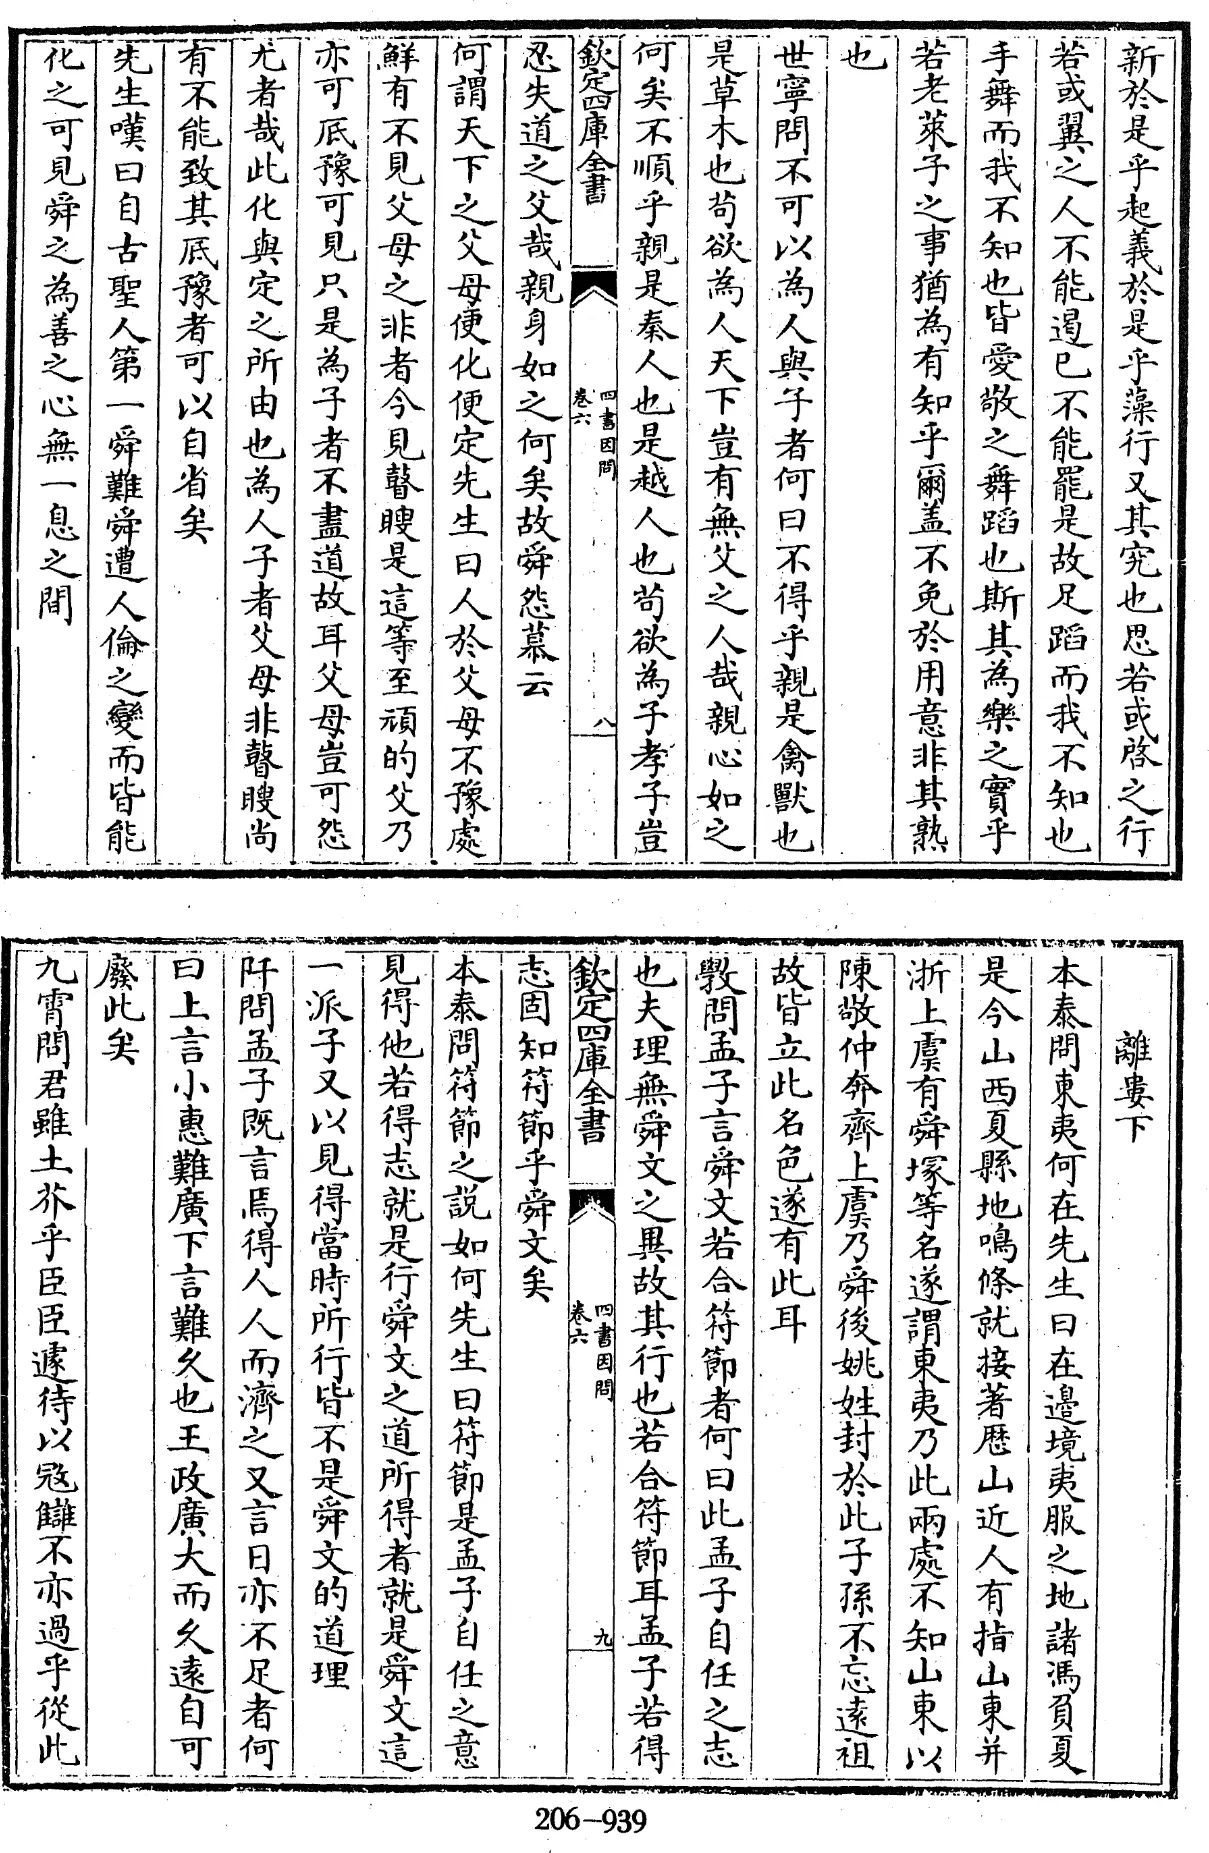 新於是乎起義於是乎藻行又其究也思若或啓之行
若或翼之人不能遏已不能罷是故足蹈而我不知也
手舞而我不知也皆愛敬之舞蹈也斯其為樂之實乎
若老萊子之事猶為有知乎爾盖不免於用意非其熟
也
世寧問不可以為人與子者何曰不得乎親是禽獸也
是草木也苟欲為人天下豈有無父之人哉親心如之
何矣不順乎親是秦人也是越人也苟欲為子孝子豈
欽定四庫全書
四書因問
卷六
八
忍失道之父哉親身如之何矣故舜怨慕云
何謂天下之父母便化便定先生曰人於父母不豫處
鮮有不見父母之非者今見瞽瞍是這等至頑的父乃
亦可底豫可見只是為子者不盡道故耳父母豈可怨
尤者哉此化與定之所由也為人子者父母非瞽瞍尚
有不能致其底豫者可以自省矣
先生嘆曰自古聖人第一舜難舜遭人倫之變而皆能
化之可見舜之為善之心無一息之間
離婁下
本泰問東夷何在先生曰在邉境夷服之地諸馮負夏
是今山西夏縣地鳴條就接著歴山近人有指山東并
浙上虞有舜塚等名遂謂東夷乃此兩處不知山東以
陳敬仲奔齊上虞乃舜後姚姓封於此子孫不忘遠祖
故皆立此名色遂有此耳
斆問孟子言舜文若合符節者何曰此孟子自任之志
也夫理無舜文之異故其行也若合符節耳孟子若得
欽定四庫全書
四書因問
卷六
九
志固知符節乎舜文矣
本泰問符節之説如何先生曰符節是孟子自任之意
見得他若得志就是行舜文之道所得者就是舜文這
一派子又以見得當時所行皆不是舜文的道理
阡問孟子既言焉得人人而濟之又言日亦不足者何
曰上言小惠難廣下言難久也王政廣大而久遠自可
廢此矣
九霄問君雖土芥乎臣臣遽待以宼讎不亦過乎從此